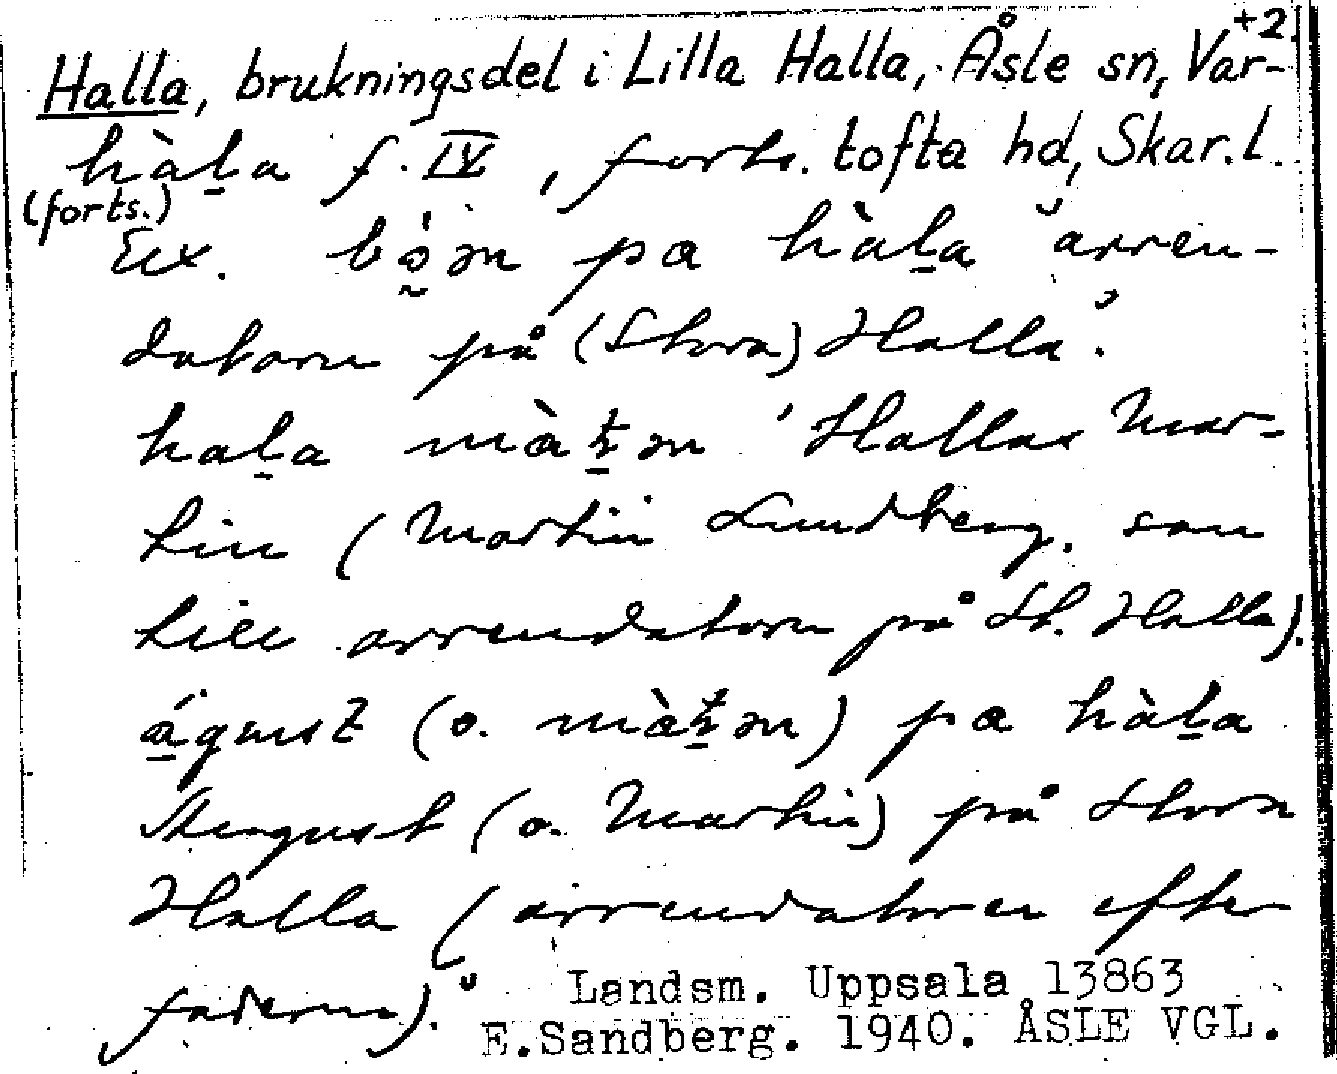 +2.
Halla, brukningsdel i Lilla Halla, Åsle sn, Var-
hàl̠a f. IV, forts. tofta hd, Skar. l.
(forts.)
Ex. bǿ̰ən pa hàl̠a "arren-
datorn på (Stora) Halla".
hal̠a màt̠ən 'Hallas Mar-
tin (Martin Lundberg, son
till arrendatorn på St. Halla).
á̠gust (o. màt̠ən) pa hàl̠a
August (o. Martin) på Stora
Halla (arrendatorer efter
fadern)."
Landsm. Uppsala 13863
E.Sandberg. 1940. ÅSLE VGL.